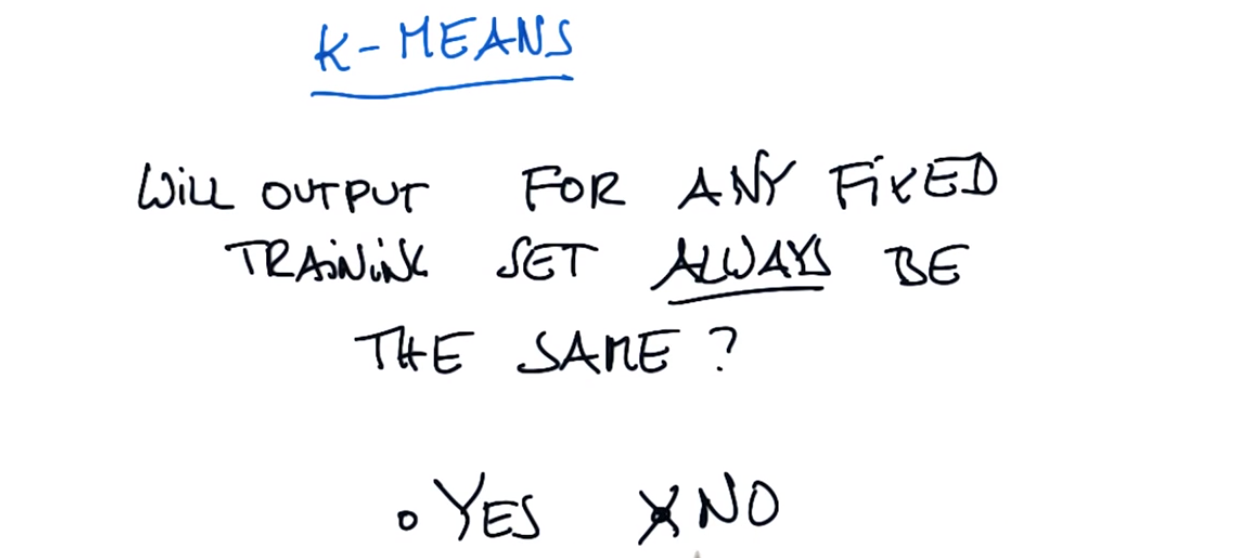 K-MEANS
WILL OUTPUT FOR ANY FIXED
TRAINING SET ALWAYS BE
THE SAME?
YES NO